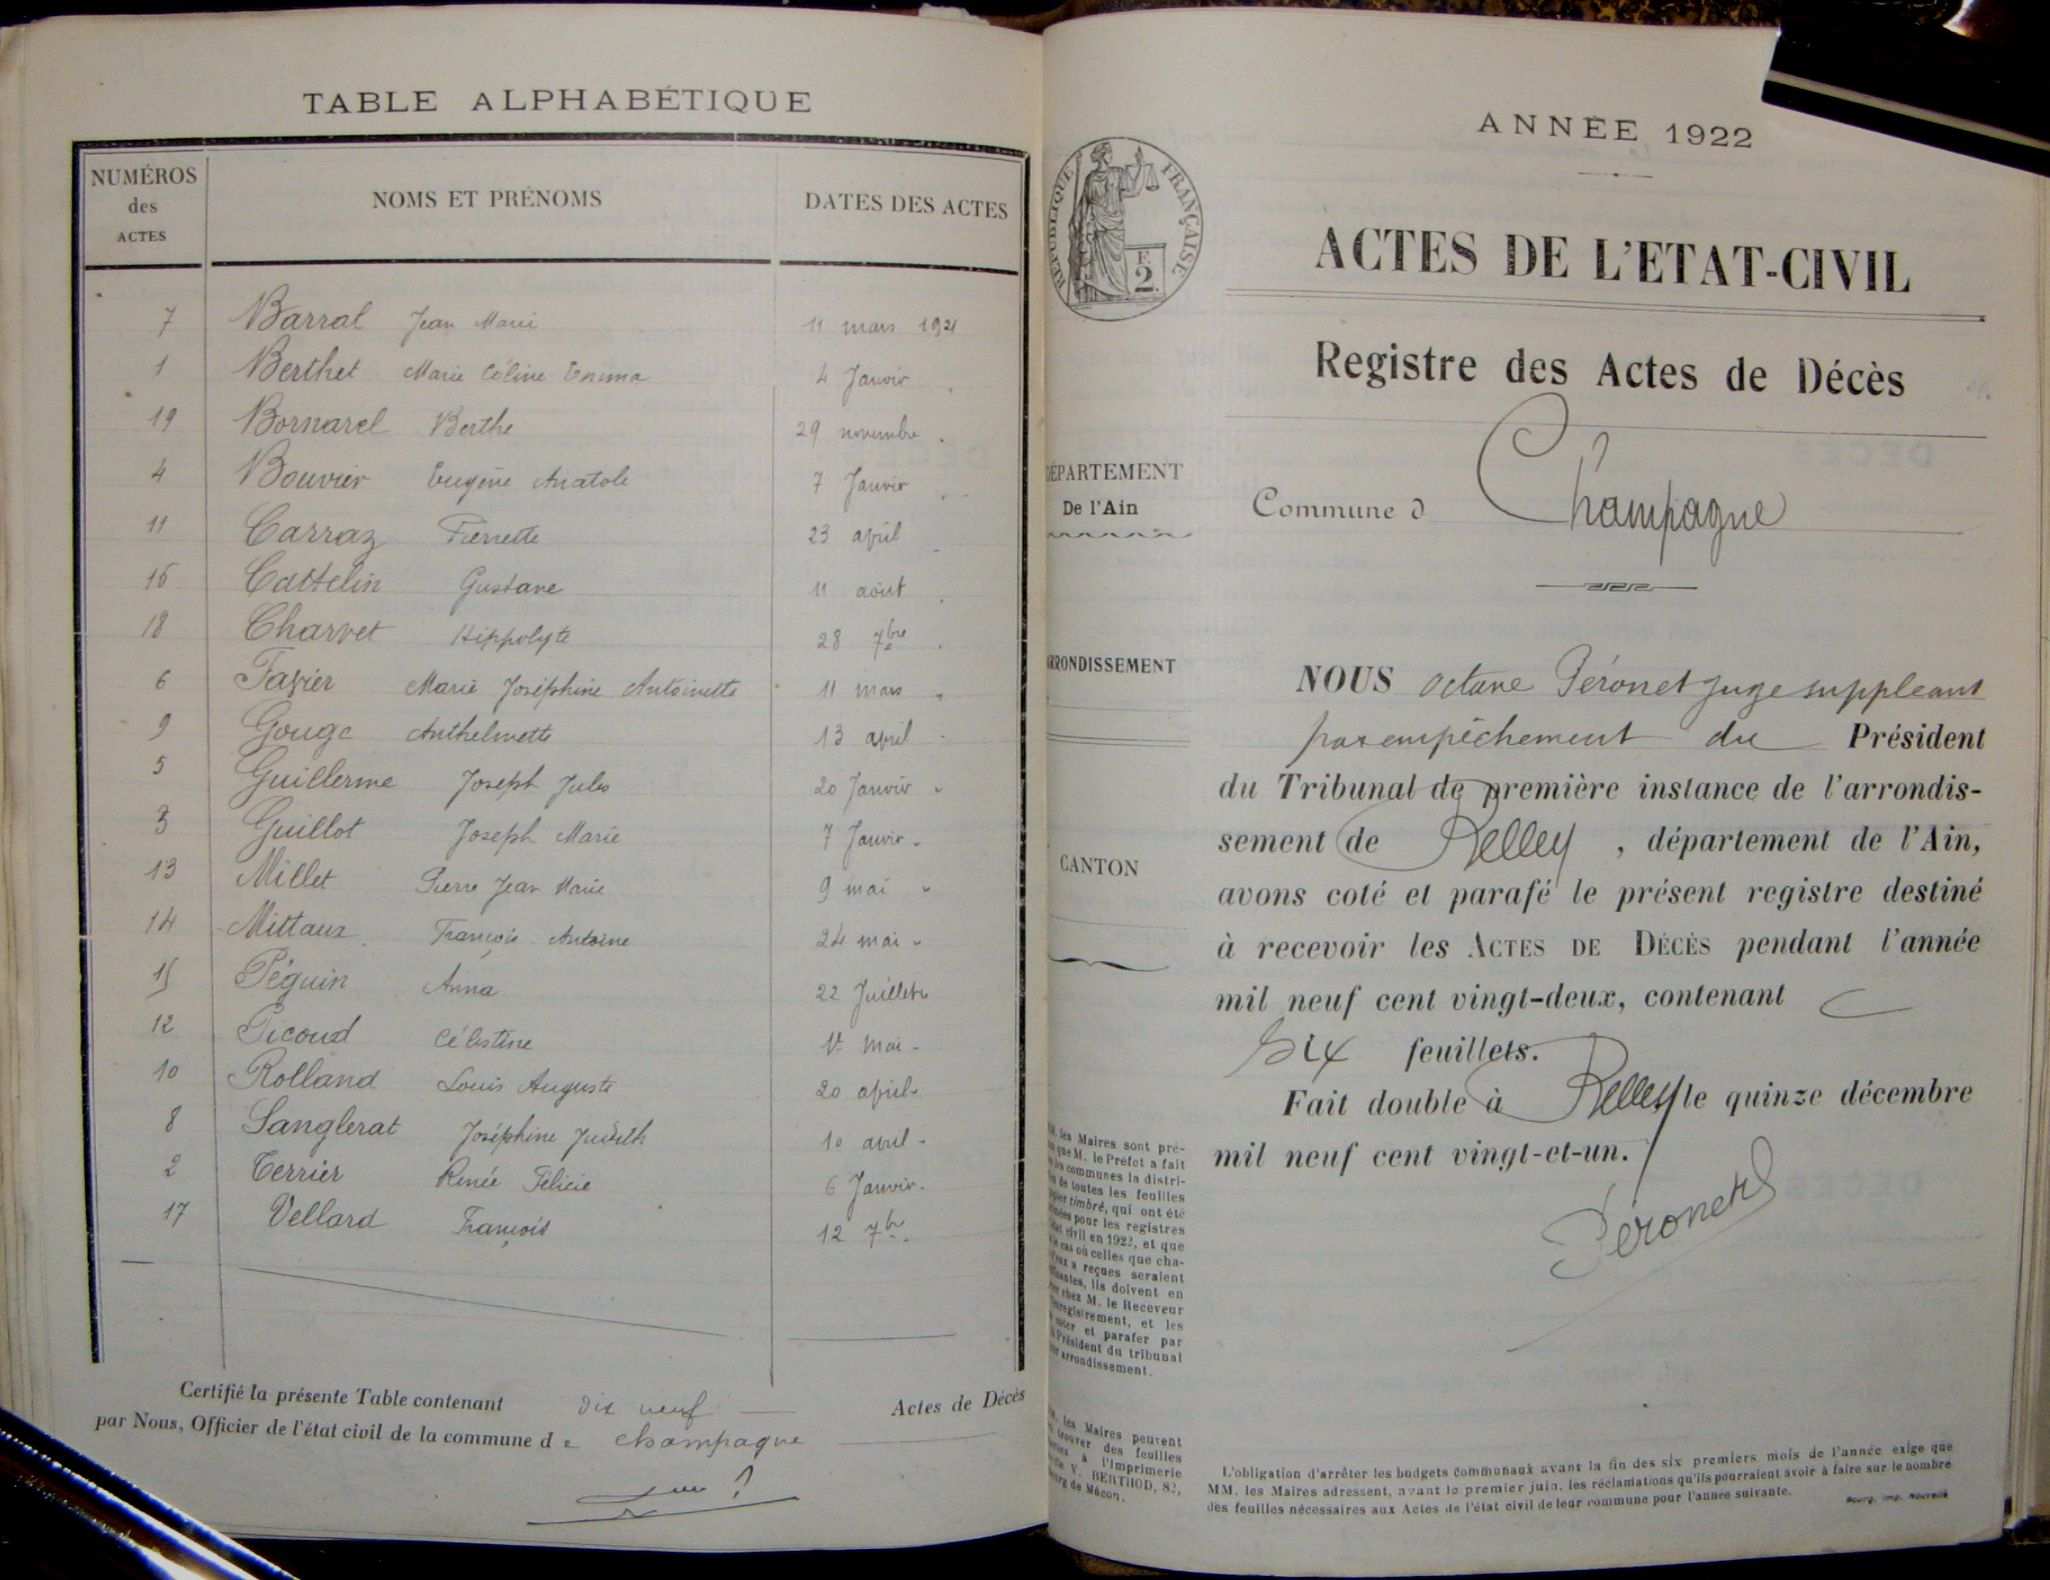 TABLE ALPHABÉTIQUE
NUMÉROS des ACTES
NOMS ET PRÉNOMS
DATES DES ACTES
7 Barral Jean Marie 11 mars 1921
1 Berthet Marie Céline Emma 4 Janvier
19 Bornarel Berthe 29 novembre
4 Bouvier Eugène Anatole 7 Janvier
11 Carraz Pierrette 23 avril
16 Cattelin Gustave 11 août
18 Charvet Hippolyte 28 7bre
6 Favier Marie Joséphine Antoinette 11 mars
9 Gouge Anthelmette 13 avril
5 Guillerme Joseph Jules 20 Janvier
3 Guillot Joseph Marie 7 Janvier
13 Millet Pierre Jean Marie 9 mai
14 Mittaux François Antoine 24 mai
15 Péguin Anna 22 Juillet
12 Picoud Célestine 1er Mai
10 Rolland Louis Auguste 20 avril
8 Sanglerat Joséphine Judith 10 avril
2 Terrier Renée Félicie 6 Janvier
17 Vellard François 12 7bre
Certifié la présente Table contenant dix neuf Actes de Décès
par Nous, Officier de l'état civil de la commune de champagne
ANNÉE 1922
RÉPUBLIQUE FRANÇAISE
F. 2.
ACTES DE L'ETAT-CIVIL
Registre des Actes de Décès
DÉPARTEMENT
De l'Ain
Commune d Champagne
ARRONDISSEMENT
CANTON
NOUS Octave Péronet Juge suppléant
par empêchement du Président
du Tribunal de première instance de l'arrondis-
sement de Belley , département de l'Ain,
avons coté et parafé le présent registre destiné
à recevoir les ACTES DE DÉCÈS pendant l'année
mil neuf cent vingt-deux, contenant
Six feuillets.
Fait double à Belley le quinze décembre
mil neuf cent vingt-et-un.
Péronet
les Maires sont pré-
que M. le Préfet a fait
communes la distri-
de toutes les feuilles
timbré, qui ont été
pour les registres
civil en 1922, et que
cas où celles que cha-
a reçues seraient
ils doivent en
chez M. le Receveur
et les
et parafer par
Président du tribunal
arrondissement.
les Maires peuvent
trouver des feuilles
à l'Imprimerie
V. BERTHOD, 82,
de Mâcon.
L'obligation d'arrêter les budgets communaux avant la fin des six premiers mois de l'année exige que
MM. les Maires adressent, avant le premier juin, les réclamations qu'ils pourraient avoir à faire sur le nombre
des feuilles nécessaires aux Actes de l'état civil de leur commune pour l'année suivante.
Bourg, imp. Nouvelle